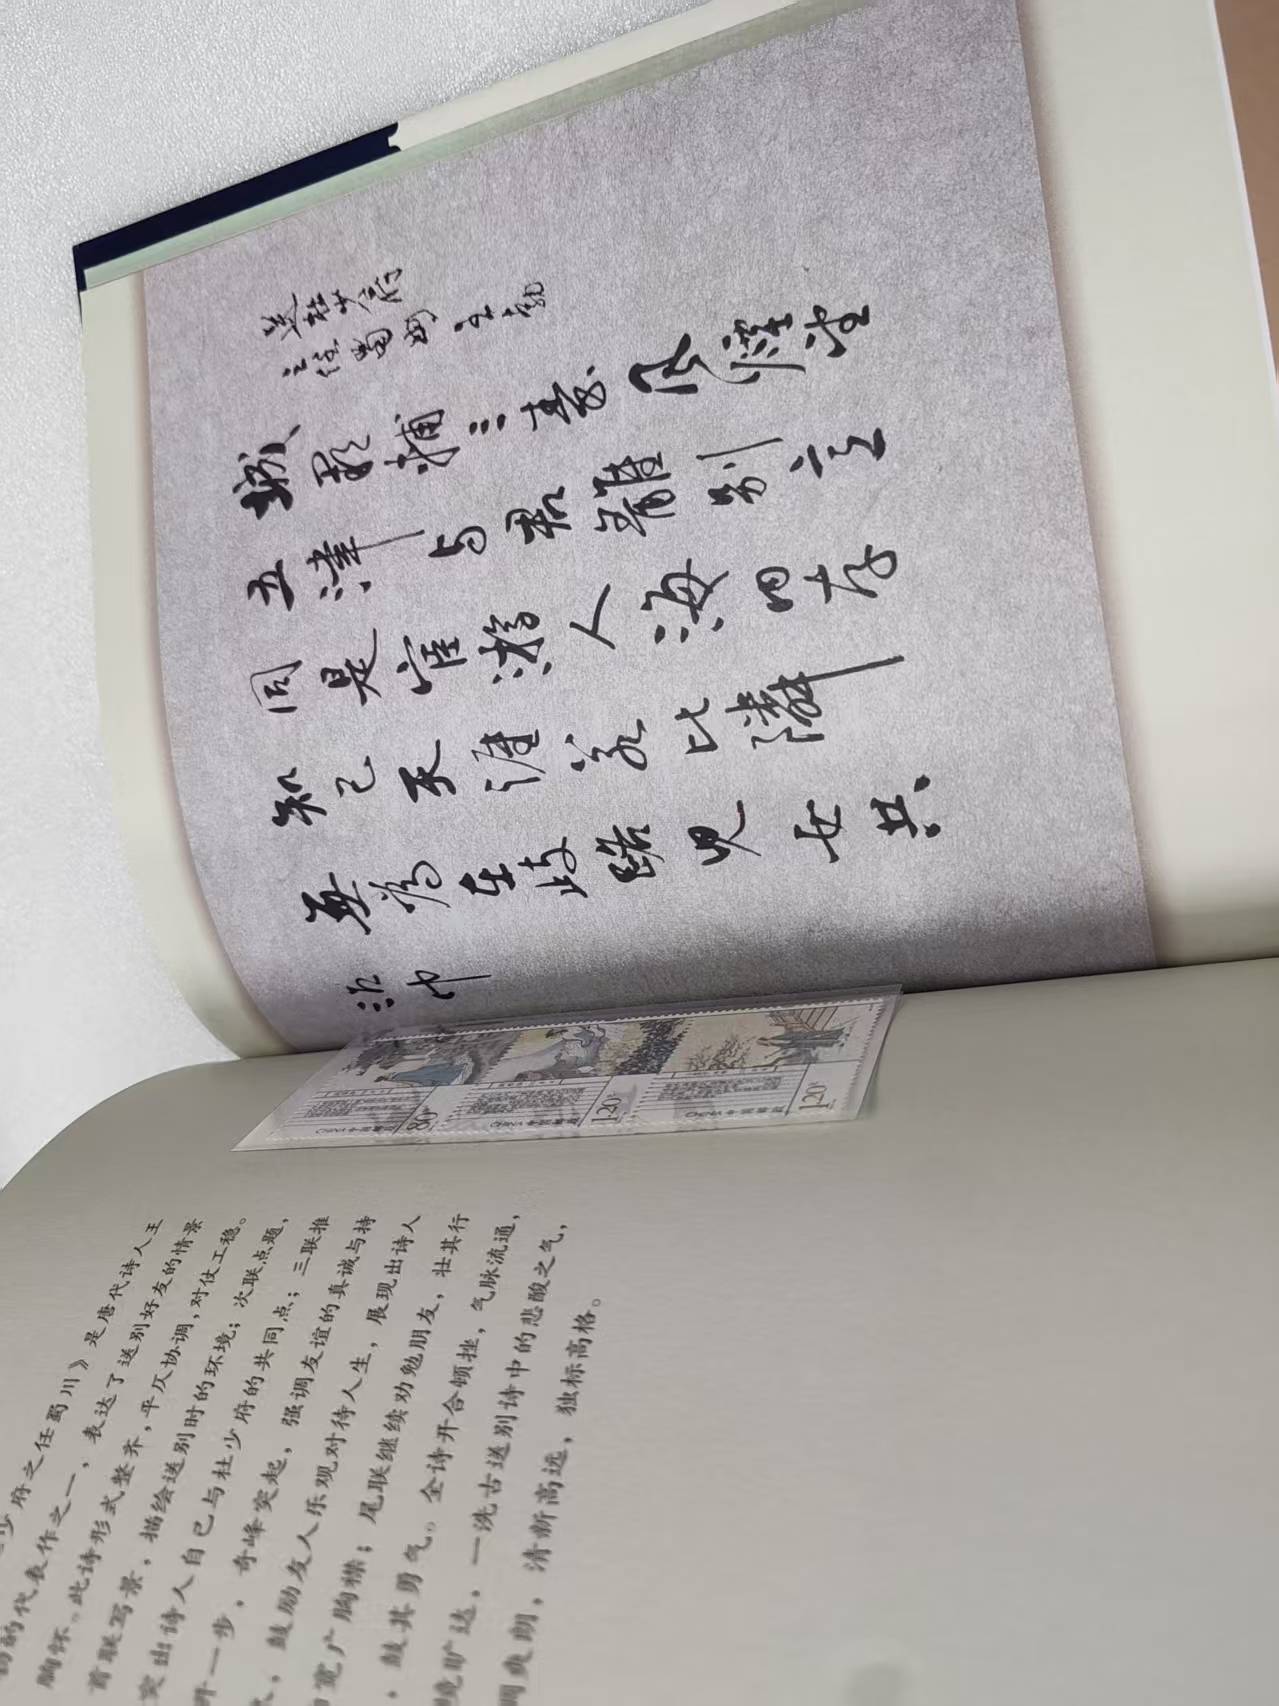 送杜少府
之任蜀州 王勃
城闕輔三秦風煙望
五津与君離別意
同是宦游人海内存
知己天涯若比隣
無為在歧路児女共
沾巾
中国邮政 CHINA
80
中国邮政 CHINA
1.20
中国邮政 CHINA
1.20
少府之任蜀川》是唐代诗人王
的代表作之一，表达了送别好友的情景
胸怀。此诗形式整齐，平仄协调，对仗工稳。
首联写景，描绘送别时的环境；次联点题，
突出诗人自己与杜少府的共同点；三联推
开一步，奇峰突起，强调友谊的真诚与持
久，鼓励友人乐观对待人生，展现出诗人
的宽广胸襟；尾联继续劝勉朋友，壮其行
，鼓其勇气。全诗开合顿挫，气脉流通，
境旷达，一洗古送别诗中的悲酸之气，
调爽朗，清新高远，独标高格。